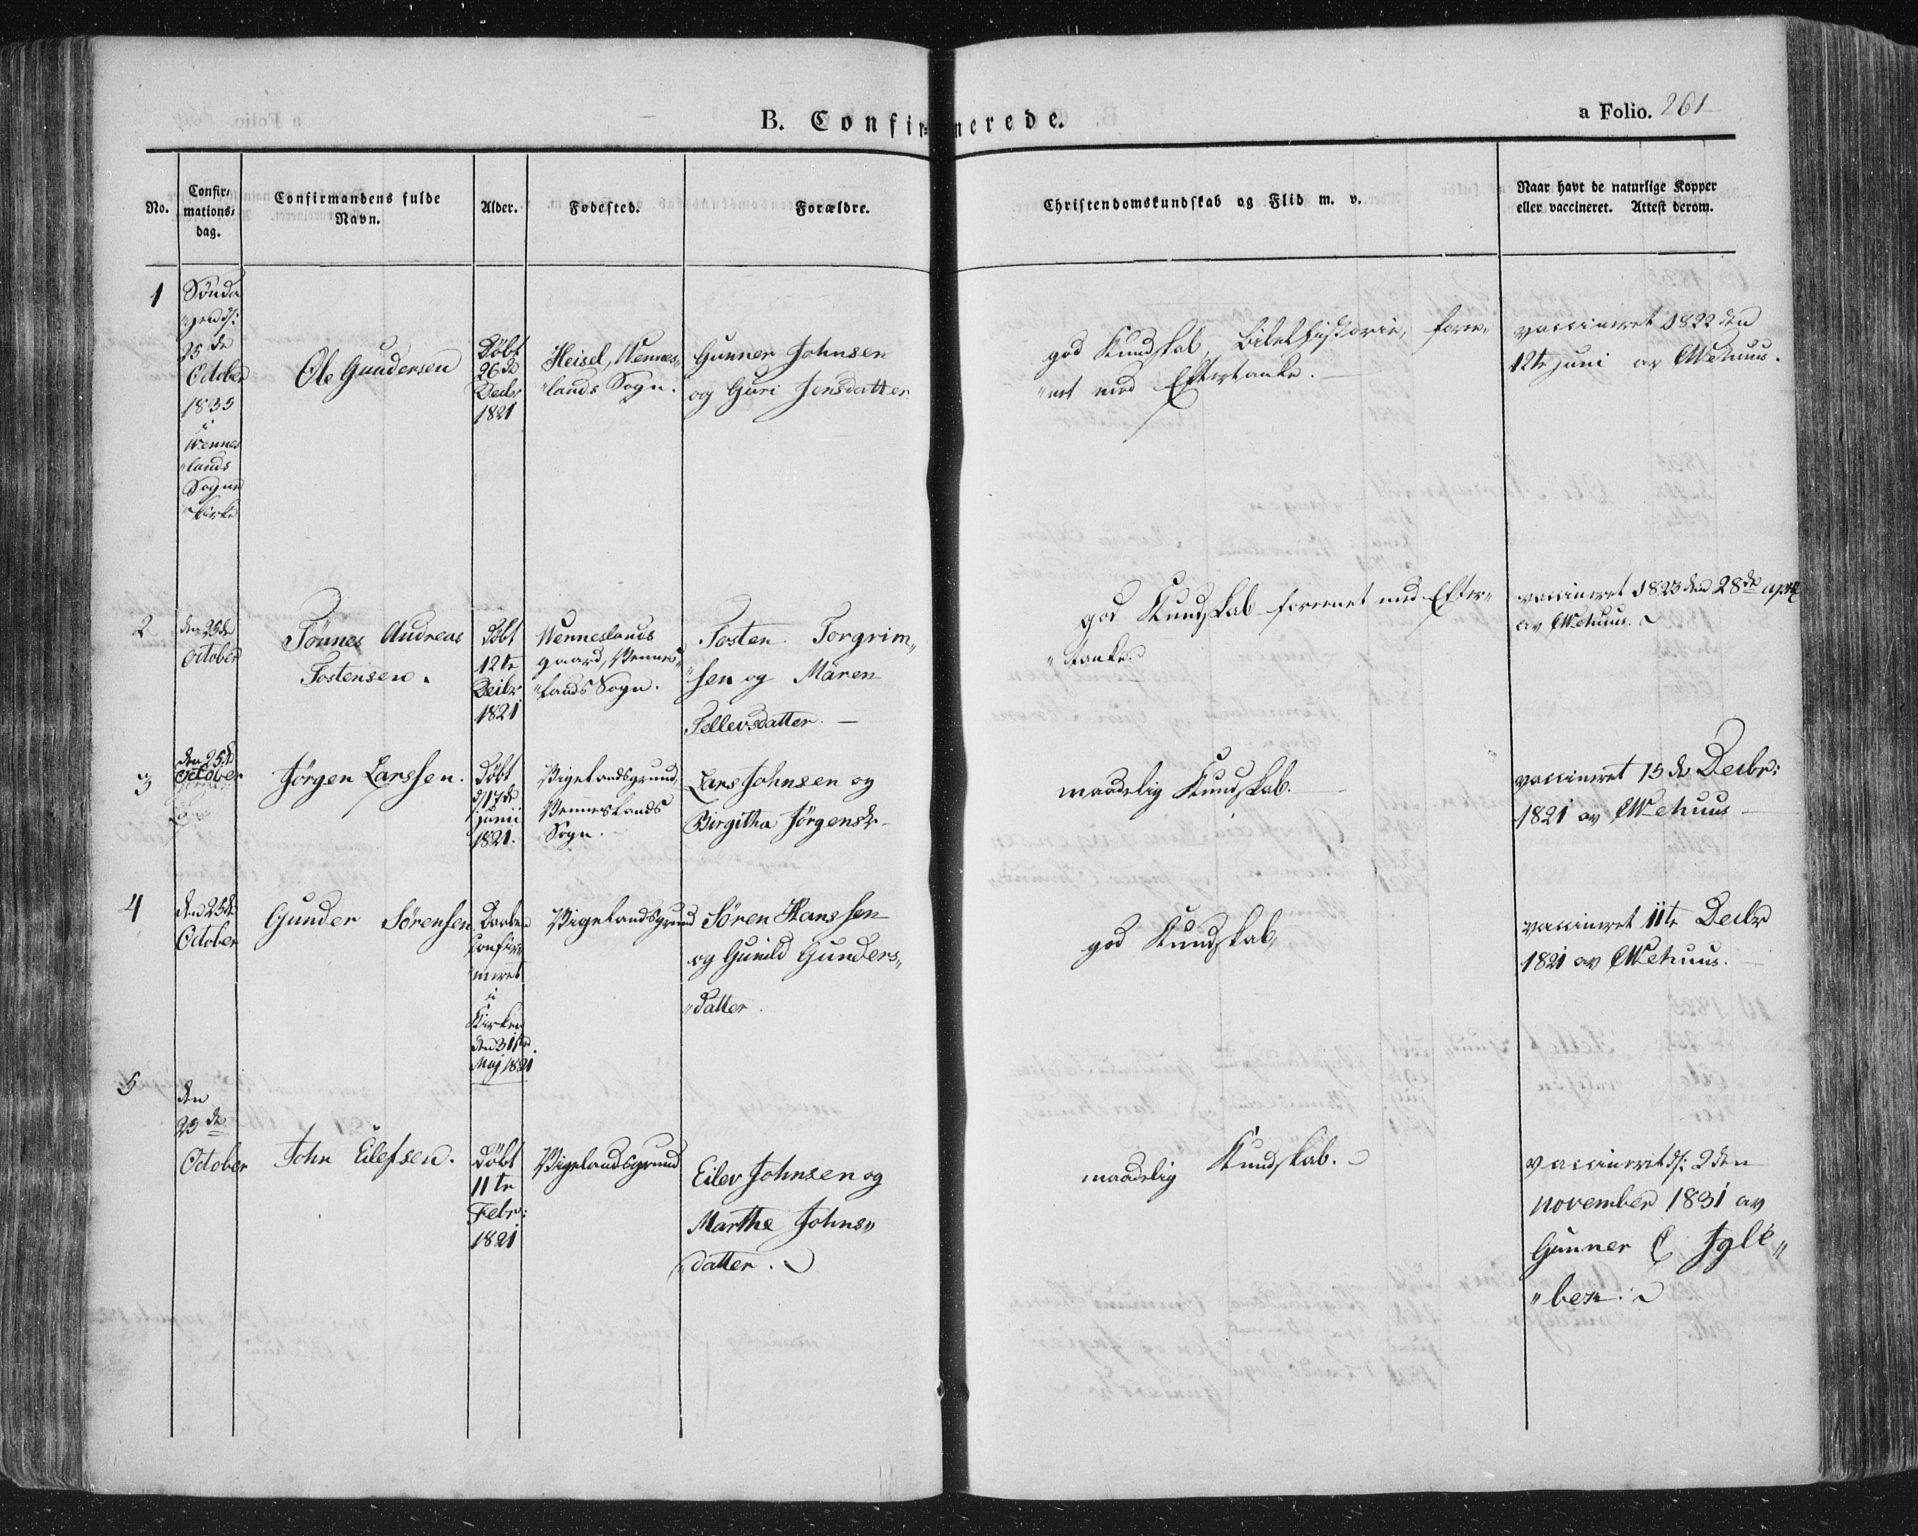 B. Confirmerede.
a Folio. 261
No.
Confir-
mations-
dag.
Confirmandens fulde
Navn.
Alder.
Fødested.
Forældre.
Christendomskundskab og Flid m. v.
Naar havt de naturlige Kopper
eller vaccineret. Attest derom.
1
Sønda
"gen d:
25de
October
1835
i
Wennes
"lands
Sogne
"kirke
Ole Gundersen
Døbt
26de
Decbr
1821
Heisel, Wennes„
"lands Sogn.
Gunner Johnsen
og Guri Jensdatter
god Kundskab, Bibelhistorie, foree„
"net med Eftertanke. —
vaccineret 1822 den
12te juni av Wehuus.
2
den 25de
October
Tønnes Andreas
Tostensen.
Døbt
12te
Decbr
1821
Wenneslands
gaard, Vennes„
"lands Sogn.
Tosten Torgrim„
"sen og Maren
Tellevsdatter. —
god Kundskab foreenet med Efter„
"tanke.
vaccineret 1823 den 28de april
av Wehuus.
3
den 25de
October
Jørgen Larssen.
Døbt
d/17de
junii
1821.
Vigelandsgrund,
Venneslands
Sogn. —
Lars Johnsen og
Birgitha Jørgensdr
maadelig Kundskab. —
vaccineret 15de Decbr:
1821 av Wehuus —
4
den 25de
October
Gunder Sørensen
Daaben
confir„
"meret
i
Kirken
den 31te
Maj 1821
Vigelandsgrund
Søren Hanssen
og Gunild Gunders„
"datter.
god Kundskab,
vaccineret 11te Decbr
1821 av Wehuus. —
5
den
25de
October
John Eilefsen.
Døbt
11te
Febr:
1821
Vigelandsgrund
Eilev Johnsen og
Marthe Johns„
"datter.
maadelig Kundskab.
vaccineret d: 2den
november 1831 av
Gunner Igle„
"bek.